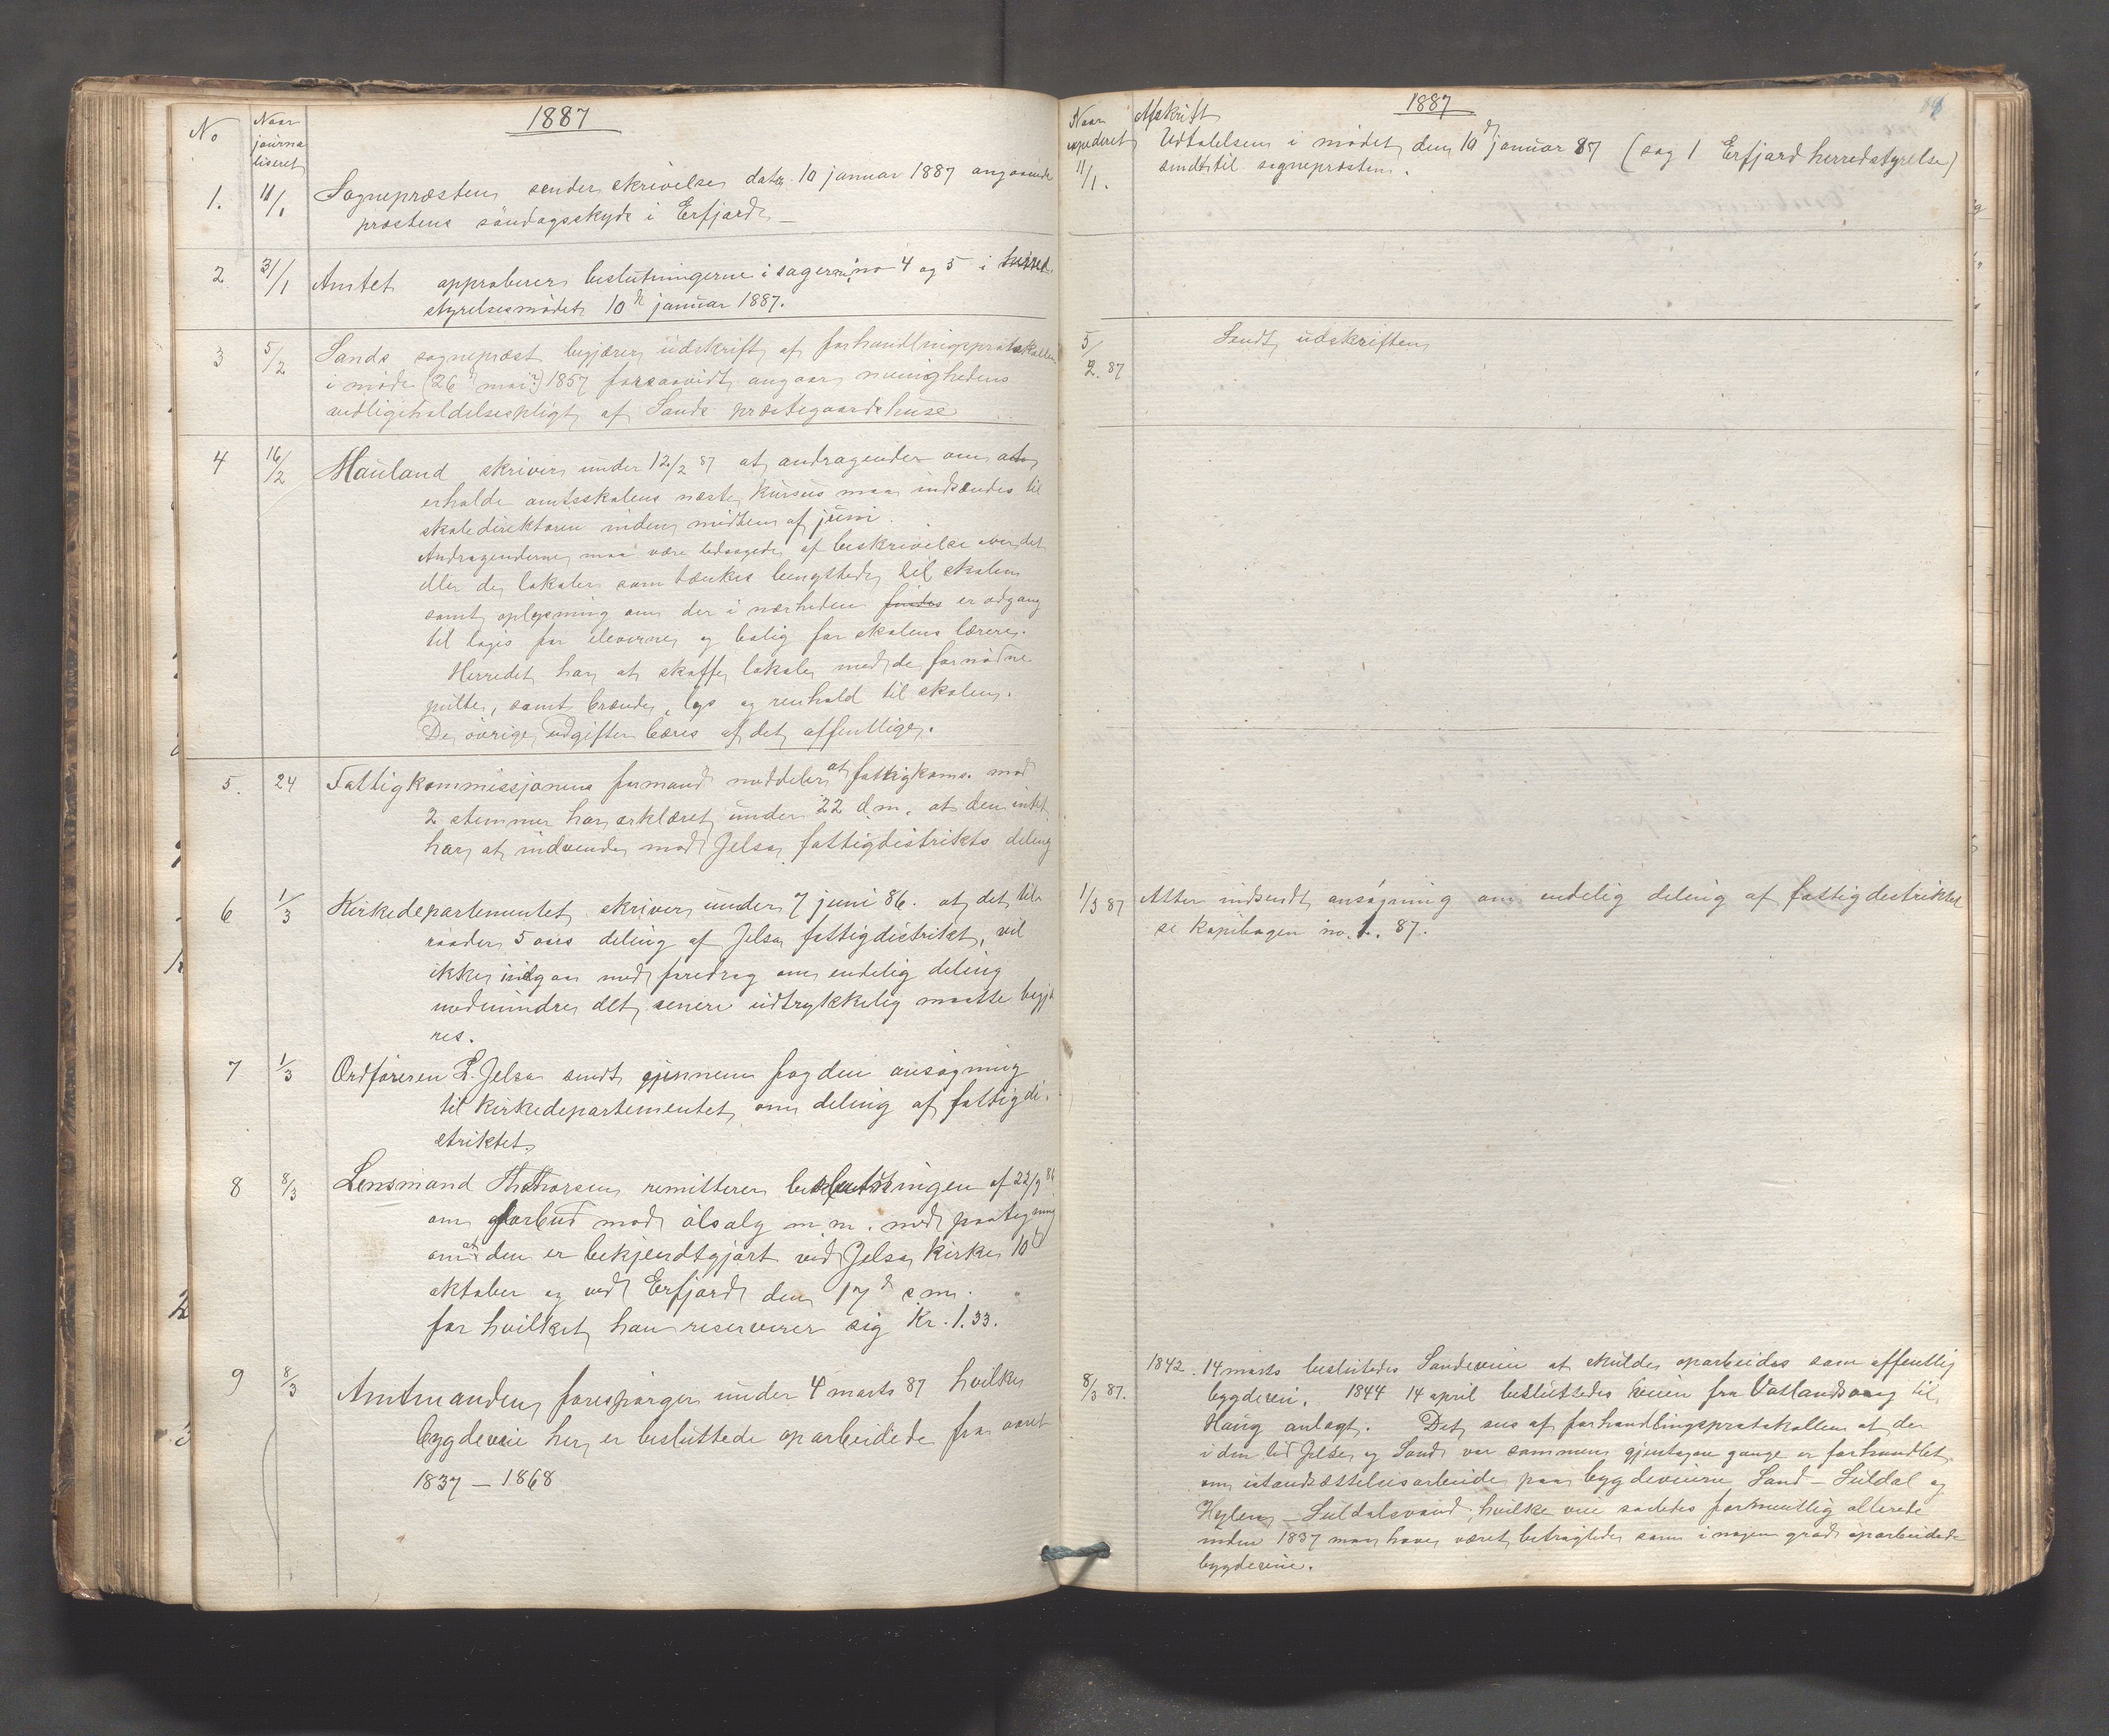 1887
No
Naar
journa
liseret
1. 11/1 Sognepræsten sender skrivelse dat. 10 januar 1887 angaaende
præstens søndagsskyds i Erfjord.
2 31/1 Amtet approberer beslutningerne i sagerne no 4 og 5 i herred
styrelsesmødet 10de januar 1887.
3 5/2 Sands sognepræst begjærer udskrift af forhandlingsprotokollen
i møde (26 mai?) 1857 forsaavidt angaar menighedens
vedligeholdelsespligt af Sands præstegaardshuse
4 16/2 Mauland skriver under 12/2 87 at andragender om at
erholde amtsskolens næste kursus maa indsendes til
skoledirektøren inden midten af juni.
Andragenderne maa være ledsagede af beskrivelse over det
eller de lokaler som tænkes benyttede til skolen
samt oplysning om der i nærheden findes er adgang
til logis for eleverne og bolig for skolens lærere.
Herredet har at skaffe lokale med de fornødne
pulte, samt brænde, lys og renhold til skolen.
De øvrige udgifter bæres af det offentlige.
5. 24 Fattigkommissjonens formand meddeler at fattigkoms. mod
2 stemmer har erklæret under 22 d.m. at den intet
har at indvende mod Jelsa fattigdistrikts deling
6 1/3 Kirkedepartementet skriver under 7 juni 86. at det til-
raader 5 aars deling af Jelsa fattigdistrikt, vil
ikke indgaa med foredrag om endelig deling
medmindre det senere udtrykkelig maatte begjæ
res.
7 1/3 Ordføreren L. Jelsa sendt gjennem fogden ansøgning
til kirkedepartementet om deling af fattigdi-
striktet.
8 8/3 Lensmand Thothorsen remitterer beslutningen af 22/9 86
om forbud mod ølsalg m.m. med paategning
om at den er bekjendtgjørt ved Jelsa kirke 10de
oktober og ved Erfjord den 17de s.m.
for hvilket han reserverer sig Kr. 1.33.
9 8/3 Amtmanden forespørger under 4 marts 87 hvilke
bygdeveie her er besluttede oparbeidede fra aaret
1837 – 1868
1887
Naar
expederet
Afskrift
11/1. Udtalelsen i mødet den 10de januar 87 (sag 1 Erfjord herredstyrelse)
sendt til sognepræsten.
5/2. 87 Sendt udskriften
1/3 87 Atter indsendt ansøgning om endelig deling af fattigdistriktet
se kopibogen no. 1. 87.
8/3 87. 1842. 14 marts besluttedes Sandsveien at skulde oparbeides som offentlig
bygdevei. 1844 14 april besluttedes veien fra Vatlandsvaag til
Haug anlagt. Det sees af forhandlingsprotokollen at der
i den tid Jelse og Sand var sammen gjentagne gange er forhandlet
om istandsættelsesarbeide paa bygdeveiene Sand – Suldal og
Hylen – Suldalsvand, hvilke veie saaledes formentlig allerede
inden 1837 maa have været betragtede som i nogen grad oparbeidede
bygdeveie.